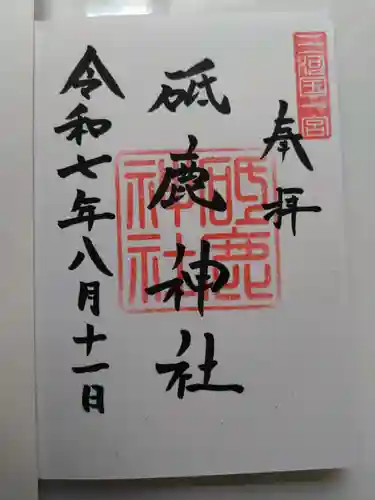 三河国一宮
奉拝
砥鹿神社
砥鹿神社
令和七年八月十一日